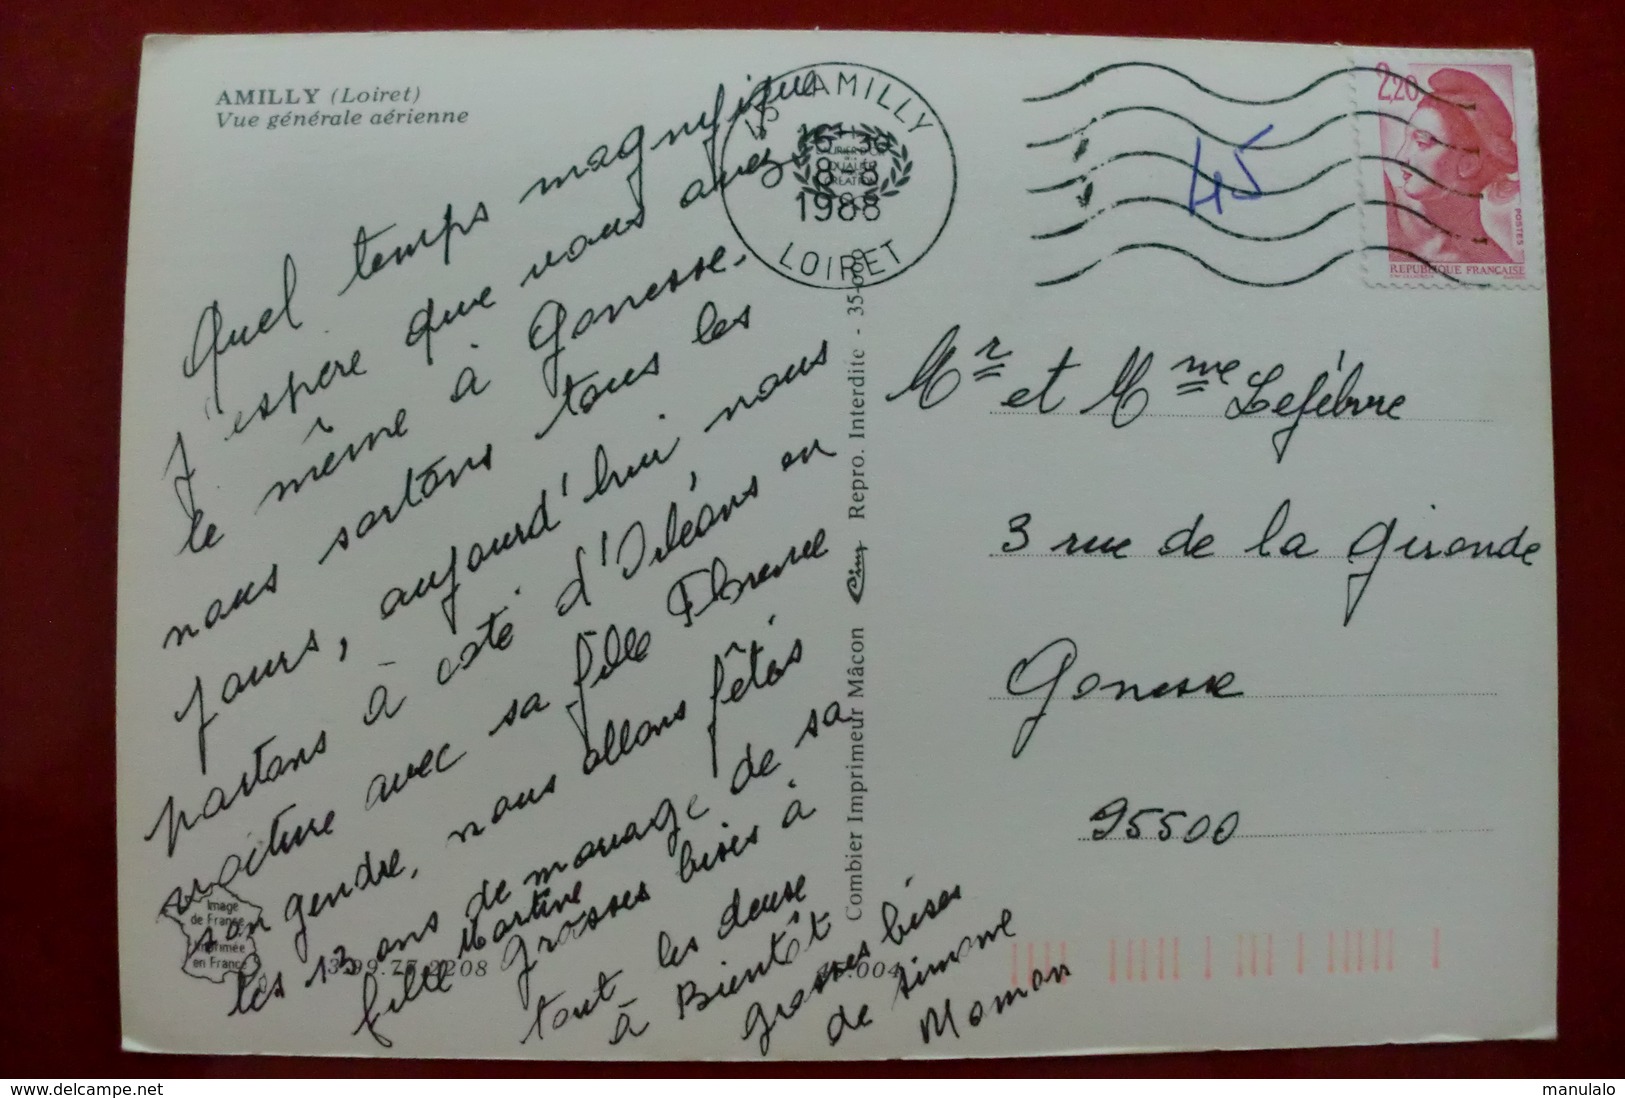 AMILLY (Loiret)
Vue générale aérienne
Quel temps magnifique
j'espère que vous avez
le même à Gonesse.
nous sortons tous les
jours, aujourd'hui nous
partons à coté d'Orléans en
voiture avec sa fille Florence
son gendre, nous allons fêtés
les 13 ans de mariage de sa
fille Martine
grosses bises à
tout les deuse
à Bientôt
grosses bises
de Simone
Maman
45 AMILLY
16H30
8-8
1988
LOIRET
45
2,20
POSTES
REPUBLIQUE FRANÇAISE
Mr et Mme Lefébvre
3 rue de la Gironde
Gonesse
95500
Combier Imprimeur Mâcon Cim Repro. Interdite - 35-
Image
de France
Imprimée
en France
manulalo